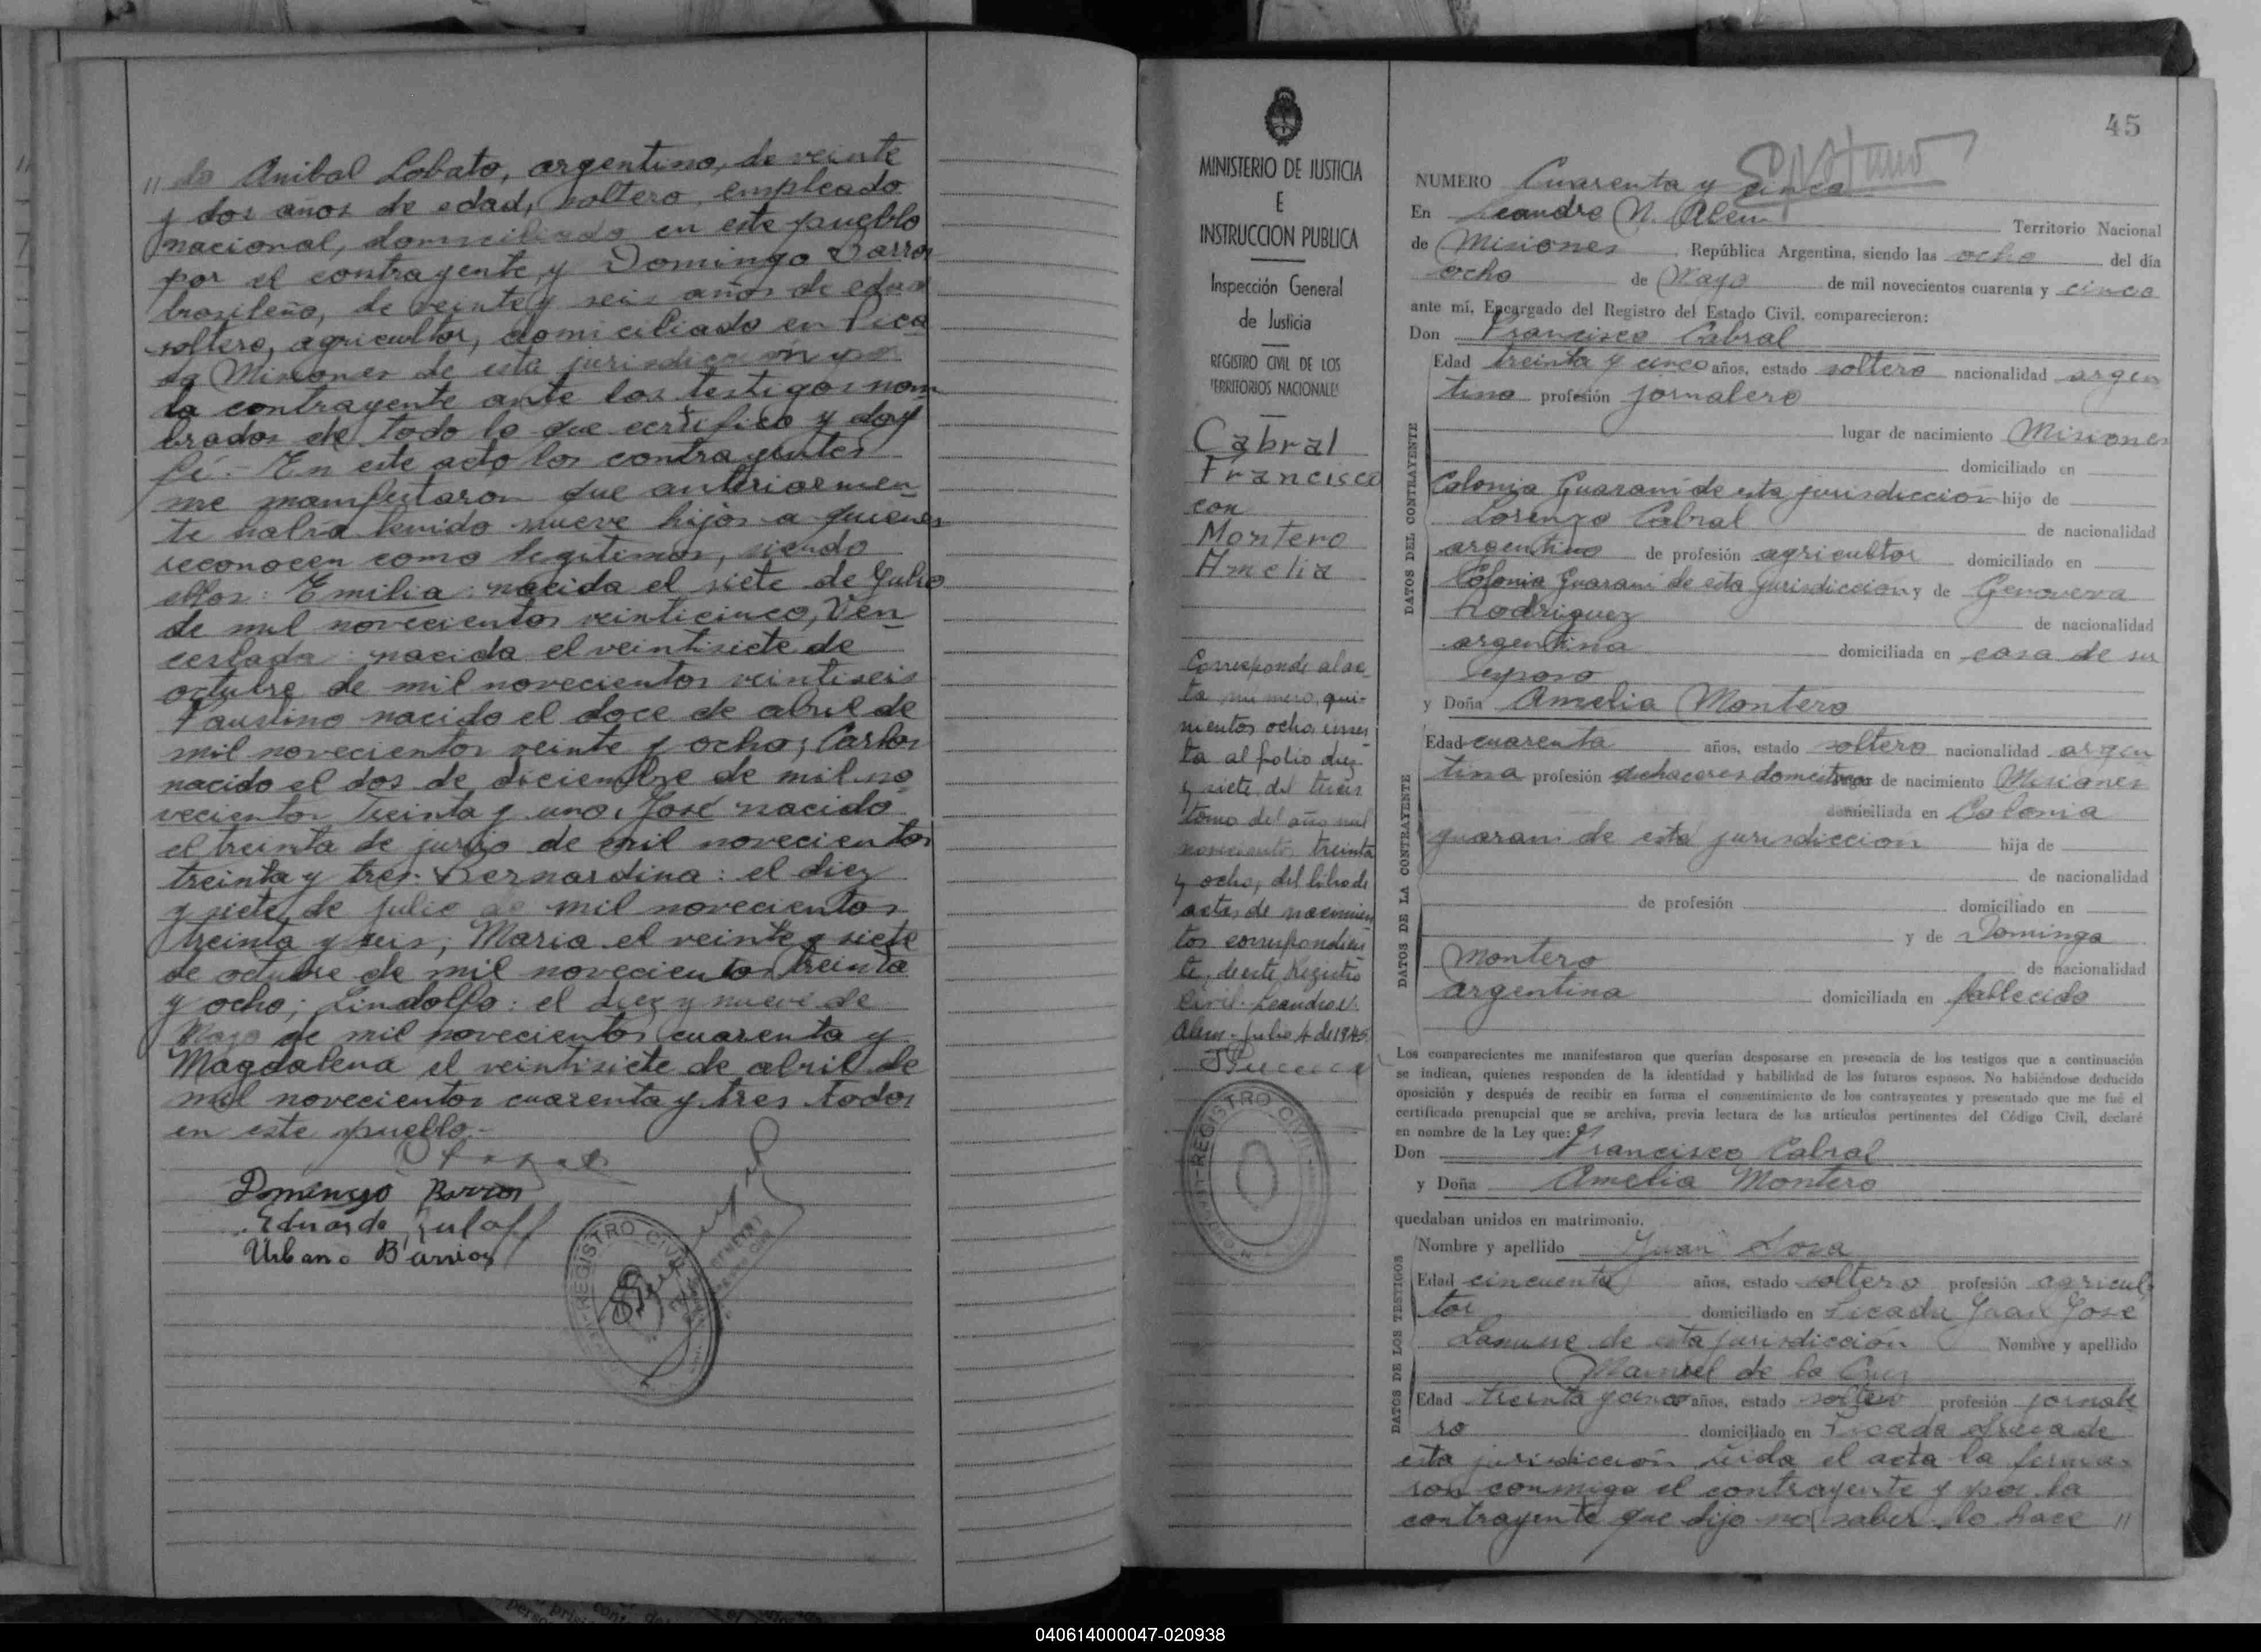 " do Anibal Lobato, argentino, de veinte
y dos años de edad, soltero, empleado
nacional, domiciliado en este pueblo
por el contrayente y Domingo Barros
brasileño, de veinte y seis años de edad
soltero, agricultor, domiciliado en Pica
da Misiones de esta jurisdicción por
la contrayente ante los testigos nom
brados de todo lo que certifico y doy
fé.- En este acto los contrayentes
me manifestaron que anteriormen
te había tenido nueve hijos a quienes
reconocen como legitimos, siendo
ellos: Emilia: nacida el siete de Julio
de mil novecientos veinticinco, Ven
ceslada: nacida el veintisiete de
octubre de mil novecientos veintiseis
Faustino nacido el doce de abril de
mil novecientos veinte y ocho; Carlos
nacido el dos de diciembre de mil no
vecientos treinta y uno, José nacido
el treinta de junio de mil novecientos
treinta y tres. Bernardina: el diez
y siete de julio de mil novecientos
treinta y seis; Maria el veinte y siete
de octubre de mil novecientos treinta
y ocho; Lindolfo: el diez y nueve de
Mayo de mil novecientos cuarenta y
Magdalena el veintisiete de abril de
mil novecientos cuarenta y tres todos
en este pueblo.-
Domingo Barros
Eduardo
Urbano Barrios
REGISTRO CIVIL
MINISTERIO DE JUSTICIA
E
INSTRUCCION PUBLICA
Inspección General
de Justicia
REGISTRO CIVIL DE LOS
TERRITORIOS NACIONALES
Cabral
Francisco
con
Montero
Amelia
Corresponde al ac
ta número qui-
nientos ocho inser
ta al folio diez
y siete del tercer
tomo del año mil
novecientos treinta
y ocho, del libro de
actas de nacimien
tos correspondien
te, de este Registro
Civil. Leandro N.
Alem - Julio 4 de 1945
REGISTRO CIVIL
45
NUMERO Cuarenta y cinco
En Leandro N. Alem Territorio Nacional
de Misiones República Argentina, siendo las ocho del día
ocho de Mayo de mil novecientos cuarenta y cinco
ante mí, Encargado del Registro del Estado Civil, comparecieron:
Don Francisco Cabral
DATOS DEL CONTRAYENTE
Edad treinta y cinco años, estado soltero nacionalidad argen
tino profesión jornalero
lugar de nacimiento Misiones
domiciliado en
Colonia Guaraní de esta jurisdiccion hijo de
Lorenzo Cabral de nacionalidad
argentino de profesión agricultor domiciliado en
Colonia Guarani de esta jurisdiccion y de Genoveva
Rodriguez de nacionalidad
argentina domiciliada en casa de su
esposo
y Doña Amelia Montero
DATOS DE LA CONTRAYENTE
Edad cuarenta años, estado soltera nacionalidad argen
tina profesión quehaceres domesticos lugar de nacimiento Misiones
domiciliada en Colonia
guarani de esta jurisdiccion hija de
de nacionalidad
de profesión domiciliado en
y de Dominga
Montero de nacionalidad
argentina domiciliada en fallecida
Los comparecientes me manifestaron que querían desposarse en presencia de los testigos que a continuación
se indican, quienes responden de la identidad y habilidad de los futuros esposos. No habiéndose deducido
oposición y después de recibir en forma el consentimiento de los contrayentes y presentado que me fué el
certificado prenupcial que se archiva, previa lectura de los artículos pertinentes del Código Civil, declaré
en nombre de la Ley que:
Don Francisco Cabral
y Doña Amelia Montero
quedaban unidos en matrimonio.
DATOS DE LOS TESTIGOS
Nombre y apellido Juan Sosa
Edad cincuenta años, estado soltero profesión agricul
tor domiciliado en Picada Juan José
Lanusse de esta jurisdicción Nombre y apellido
Manuel de la Cruz
Edad treinta y cinco años, estado soltero profesión jornale
ro domiciliado en Picada de
esta jurisdiccion leida el acta la firma-
ron conmigo el contrayente y por la
contrayente que dijo no saber lo hace "
040614000047-020938